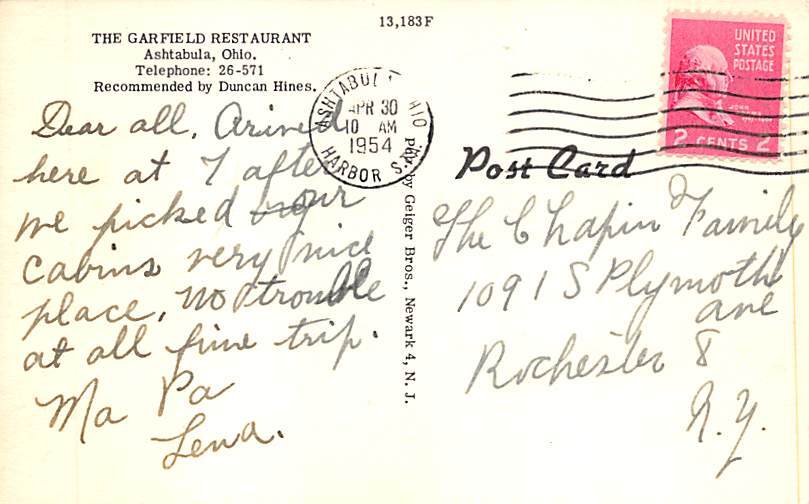 13,183F
THE GARFIELD RESTAURANT
Ashtabula, Ohio.
Telephone: 26-571
Recommended by Duncan Hines.
Dear all, Arived
here at 7 after
we picked our
cabins very nice
place, no trouble
at all fine trip.
Ma Pa
Lena.
Pub. by Geiger Bros., Newark 4, N. J.
ASHTABULA OHIO
APR 30
10 AM
1954
HARBOR STA.
UNITED
STATES
POSTAGE
JOHN
2 CENTS 2
Post Card
The Chapin Family
1091 S Plymoth
ave
Rochester 8
N.Y.